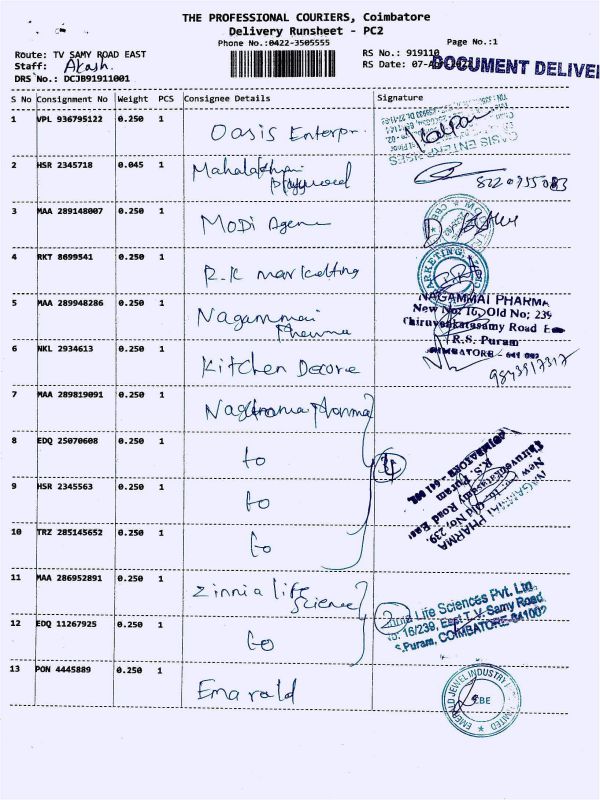 THE PROFESSIONAL COURIERS, Coimbatore
Delivery Runsheet - PC2
Phone No.:0422-3505555
Page No.:1
Route: TV SAMY ROAD EAST
RS No.: 919110
Staff: Akash.
RS Date: 07-
DOCUMENT DELIVE
DRS No.: DCJB91911001
S No Consignment No Weight PCS Consignee Details Signature
1 VPL 936795122 0.250 1 Oasis Enterpr.
OASIS ENTERPRISES
2 HSR 2345718 0.045 1 Mahalakhmi
plywood
3 MAA 289148007 0.250 1 Modi Agen
4 RKT 8699541 0.250 1 R.K marketting
5 MAA 289948286 0.250 1 Nagammai
Pharma
NAGAMMAI PHARMA
New No: 16, Old No; 239
Chiruvenkatasamy Road E
R.S. Puram
COIMBATORE - 641 002
6 NKL 2934613 0.250 1 Kitchen Decore
9843917317
7 MAA 289819091 0.250 1 Pharma
8 EDQ 25070608 0.250 1 to
9 HSR 2345563 0.250 1 to
10 TRZ 285145652 0.250 1 to
4
NAGAMMAI PHARMA
New No: 16, Old No; 239,
Chiruvenkatasamy Road East
R.S. Puram
COIMBATORE - 641 002.
11 MAA 286952891 0.250 1 Zinnia life
Science
12 EDQ 11267925 0.250 1 to
2
Life Sciences Pvt. Ltd
16/239, East T.V. Samy Road
S.Puram, COIMBATORE-641002
13 PON 4445889 0.250 1 Emarald
EMERALD JEWEL INDUSTRY LIMITED
CBE